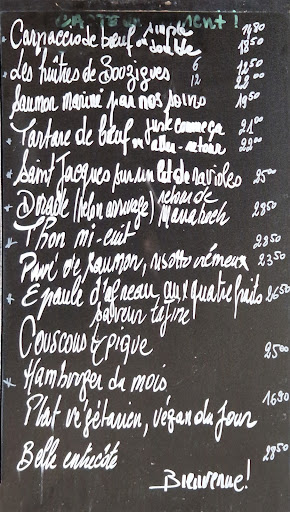 Carpaccio de bœuf simple 1480
ou double 1850
Les huîtres de Bouzigues 6 1250
12 2200
Saumon mariné par nos soins 1950
* Tartare de bœuf juste comme ça 2100
ou aller-retour 2200
* Saint Jacques sur un lit de ravioles 2500
* Dorade (selon arrivage) retour de Marrakech 2850
* Thon mi-cuit 2250
Pavé de saumon, risotto crémeux 2350
* Epaule d'agneau aux quatre fruits 2650
saveur tajine
Couscous Epique 2500
* Hamburger du mois
Plat végétarien, végan du jour 1690
Belle entrecôte 2850
Bienvenue!